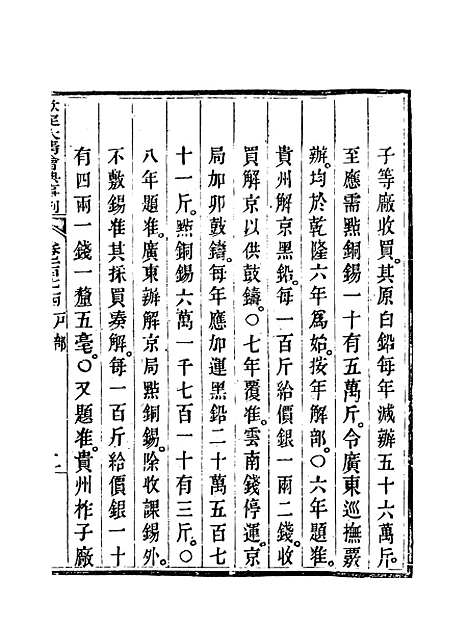 子等廠收買。其原白鉛每年減辦五十六萬斤。
至應需點銅錫一十有五萬斤。令廣東巡撫覈
辦。均於乾隆六年爲始。按年解部。○六年題准。
貴州解京黑鉛。每一百斤給價銀一兩二錢。收
買解京。以供鼓鑄。○七年覆准。雲南錢停運。京
局加卯鼓鑄。每年應加運黑鉛二十萬五百七
十一斤。點銅錫六萬一千七百一十有三斤。○
八年題准。廣東辦解京局點銅錫。除收課錫外。
不敷錫准其採買湊解。每一百斤給價銀一十
有四兩一錢一釐五毫。○又題准。貴州柞子廠
欽定大淸會典事例 卷二百七十四 戶部